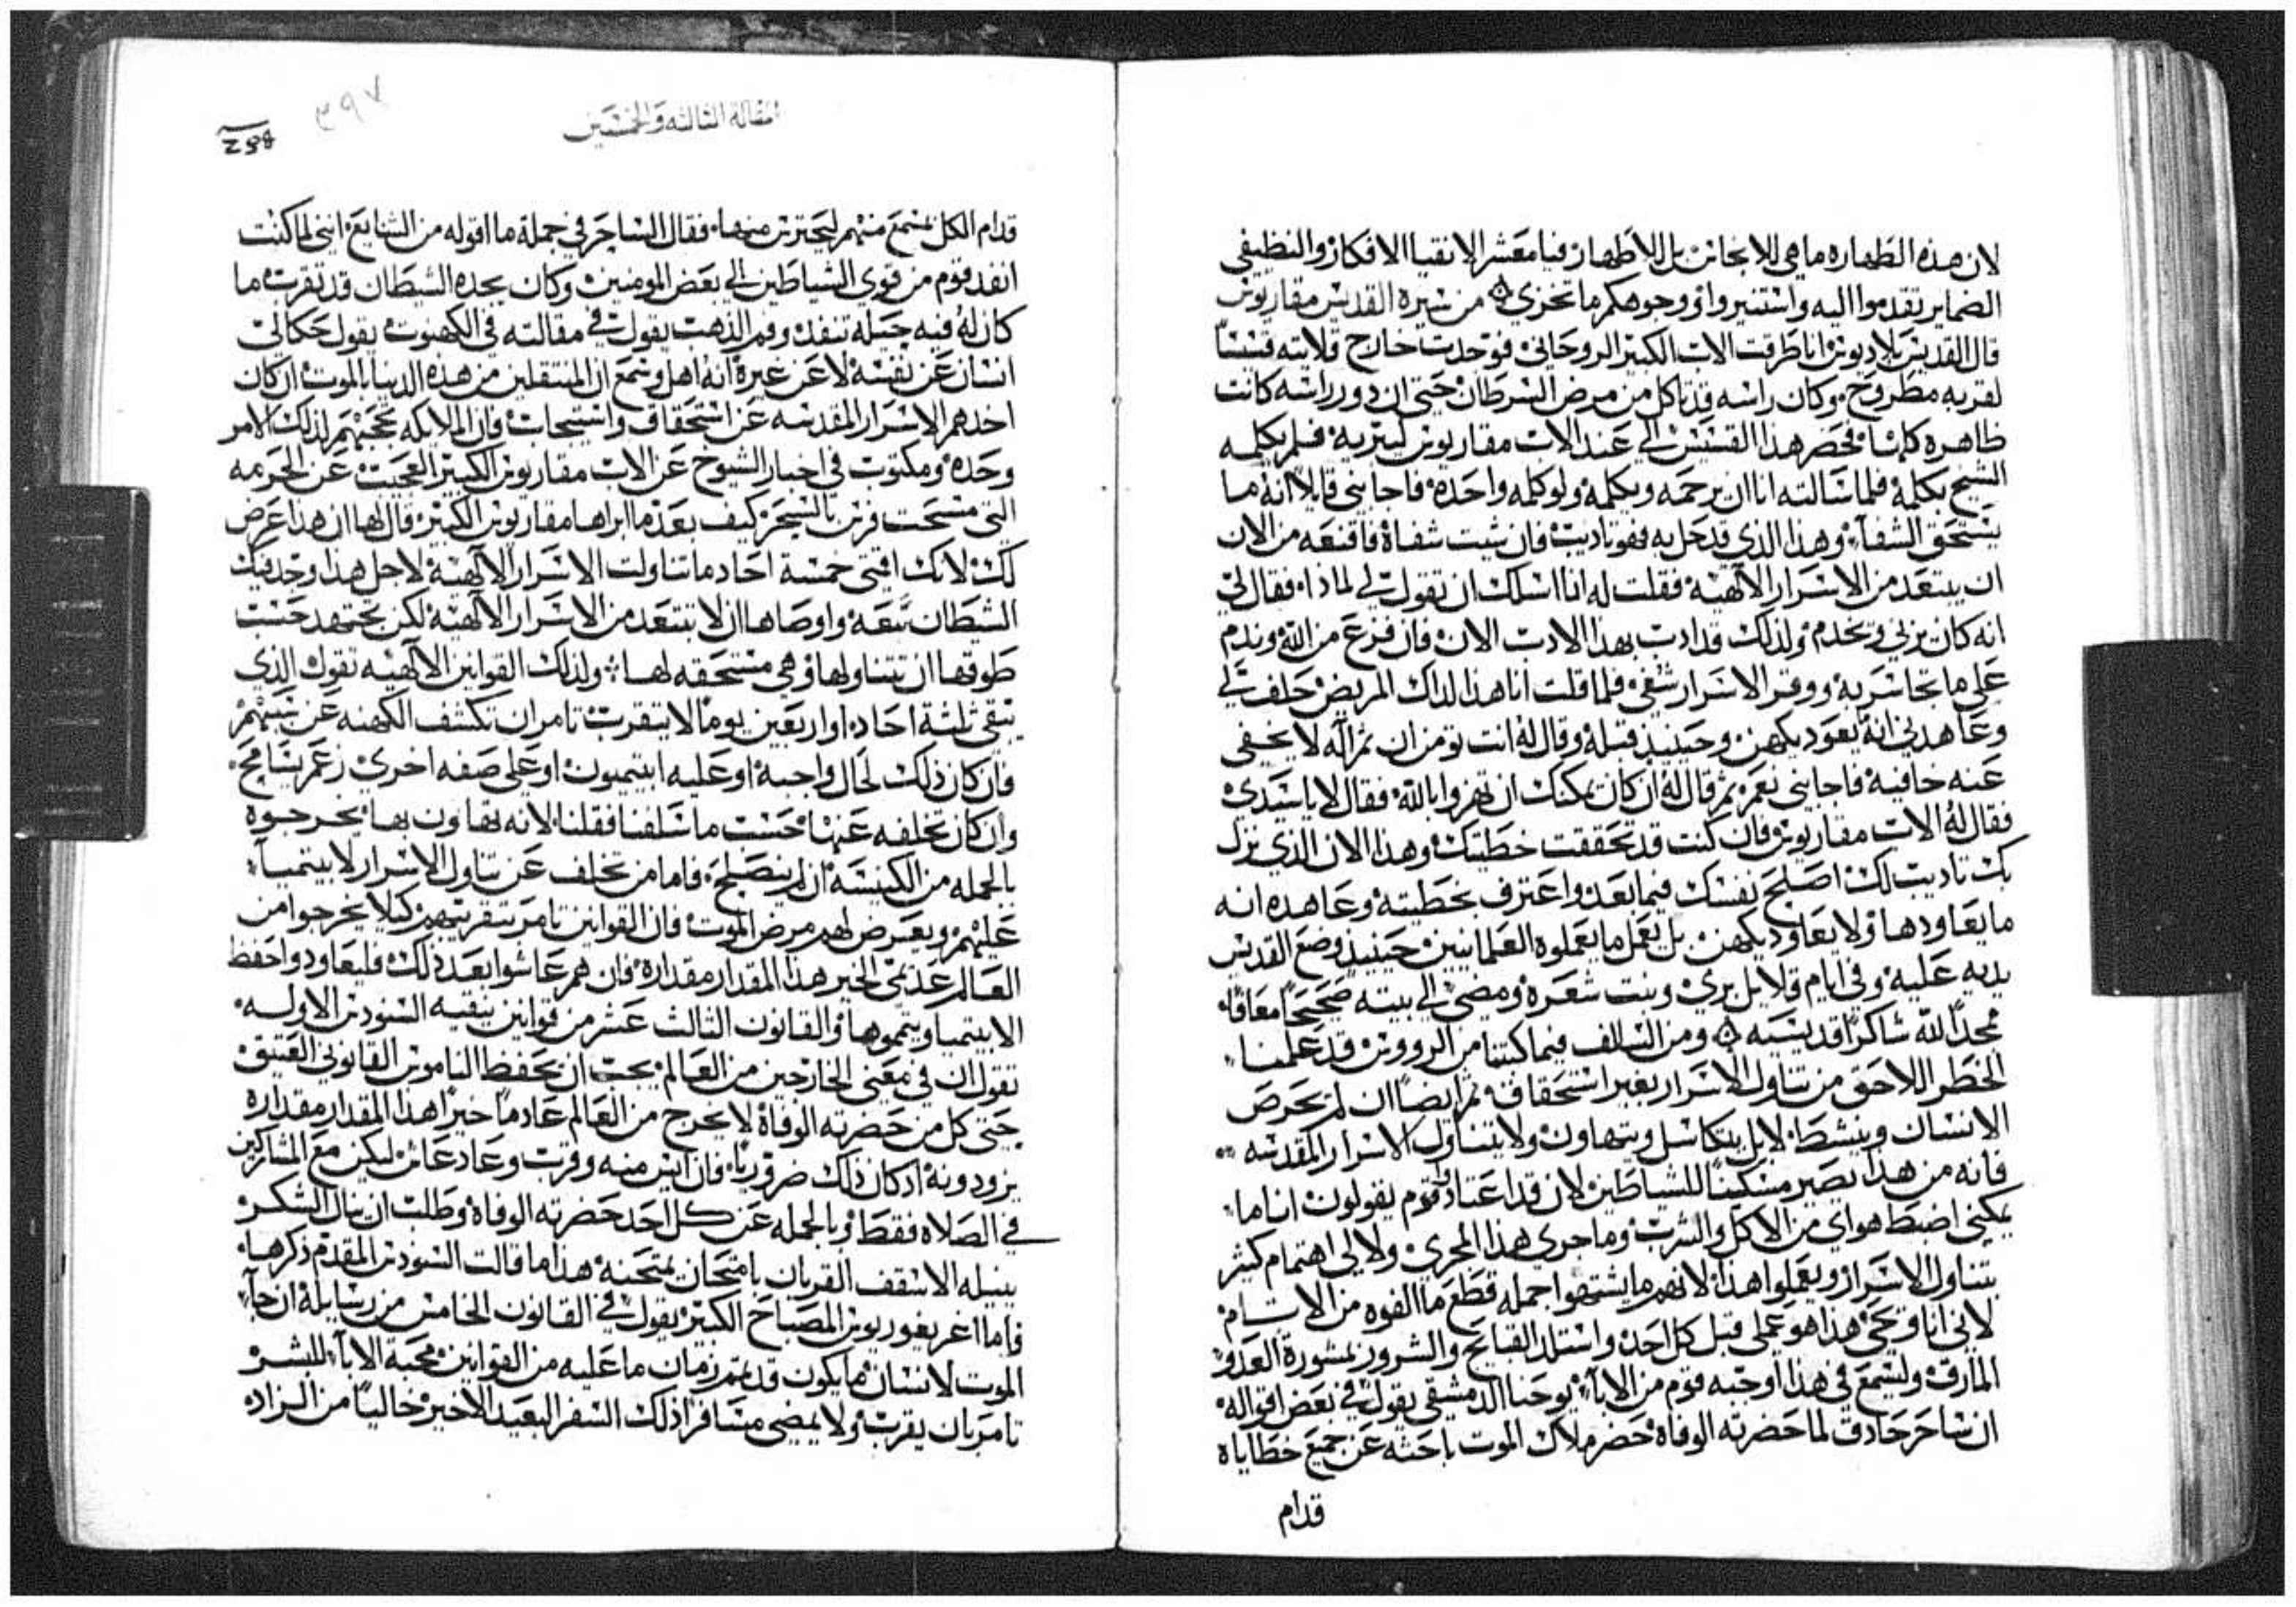 لان هذه الطهاره ما هي للانجاس بل للاطهار فيا معشر الانقيا الافكار والنظيفي
الضماير تقدموا اليه واستنيروا ووجوهكم ما تخزي من سيرة القديس مقاريوس
قال القديس بلاديوس انا طرقت الاب الكبير الروحاني فوجدت خارج قلايته قسيسا
لقربه مطروح وكان راسه قد تاكل من مرض السرطان حتي ان دور راسه كانت
ظاهره كلها فحضر هذا القسيس الي عند الاب مقاريوس ليبريه فلم يكلمه
الشيخ بكلمة فلما سالته انا ان يرحمه ويكلمه ولو كلمه واحده فاجابني قايلا انه ما
يستحق الشفاء وهذا الذي قد حل به فهو تاديب فان شيت شفاه فاقنعه من الان
ان يبتعد من الاسرار الالهية فقلت له انا اسلك ان تقول لي لماذا فقال لي
انه كان يزني ويخدم ولذلك قد ادب بهذا الادب الان فان فزع من الله وندم
علي ما تجاسر به ووقر الاسرار شفي فلما قلت انا هذا لداك المريض حلف لي
وعاهدني انه يعود يكهن وحينيذ قبله وقال له انت تومن ان ثم اله لا يخفي
عنه خافية فاجابني نعم ثم قال له ان كان يمكنك ان تهزوا بالله فقال لا يا سيدي
فقال له الاب مقاريوس فان كنت قد تحققت خطيتك وهذا الان الذي نزل
بك تاديب لك اصلح نفسك فيما بعد واعترف بخطيته وعاهده انه
ما يعاودها ولا يعاود يكهن بل يعمل ما يعملوه العلمانيين حينيذ وضع القديس
يديه عليه وفي ايام قلايل بري ونبت شعره ومضي الي بيته صحيحا معافا
ممجدا لله شاكرا قديسيه ومن السالف فيما كتبنا من الرووس قد علمنا
الخطر اللاحق من تناول الاسرار بغير استحقاق ثم ايضا ان لم يحرص
الانسان وينشط لا بل يتكاسل ويتهاون ولا يتناول الاسرار المقدسه
فانه من هذا يصير مسكنا للشياطين لان قد اعتاد قوم يقولون انا ما
يمكني اضبط هواي من الاكل والشرب وما جري هذا المجري ولا لي اهتمام كثير
بتناول الاسرار ويعملوا هذا لانهم ما يشتهوا جمله قطع ما الفوه من الاتام
لاني انا هذا هو عملي قبل كل احد واستلد القبايح والشرور بمشورة العدو
المارق ولنسمع في هذا اوجبه قوم من الاباء يوحنا الدمشقي يقول في بعض اقواله
ان ساحر حادق لما حضرته الوفاه حضر ملاك الموت باحثه عن جميع خطاياه
قدام
مقالة الثالثه والخمسين
٣٩٧
قدام الكل بمسمع منهم ليحترس منها فقال الساحر في جملة ما اقوله من الشنايع انني لما كنت
انفد قوم من قوي الشياطين الي بعض المومنين وكان يجده الشيطان قد تقرب ما
كان له فيه حيله تنفد وفم الذهب يقول في مقالته في الكهنوت يقول حكا لي
انسان عن نفسه لا عن غيره انه اهل وسمع ان المنتقلين من هذه الدنيا بالموت ان كان
احدهم الاسرار المقدسه عن استحقاق فان الملايكه تحجبهم لذلك الامر
وحده ومكتوب في اخبار الشيوخ عن الاب مقاريوس الكبير العجيب عن الحرمه
التي مسخت فرس بالسحر كيف بعد ما ابراها مقاريوس الكبير قال لها ان هذا عرض
لك لانك اقمتي خمسة احاد ما تناولت الاسرار الالهية لاجل هذا وجد فيك
الشيطان سعه واوصاها ان لا تبتعد من الاسرار الالهية لكن تجتهد حسب
طوقها ان تتناولها وهي مستحقه لها ولذلك القوانين الالهيه تقول الذي
يبقي ثلثة احاد او اربعين يوما لا يتقرب تامر ان تكشف الكهنه عن سببهم
فان كان ذلك لحال واجبة او عليه ابيتيميون او علي صفه اخري زعم يسامح
وان كان تخلفه عنها حسب ما سلفنا فقلنا لانه تهاون بها يخرجوه
بالجمله من الكنيسه ان لم ينصلح فاما من تخلف عن تناول الاسرار لابيتيميا
عليهم ويعرض لهم مرض الموت فان القوانين تامر بتقريبهم كيلا يخرجوا من
العالم عدمي الخير هذا المقدار مقداره فان هم عاشوا بعد ذلك فليعاودوا حفظ
الابيتيميا ويتمموها والقانون الثالث عشر من قوانين نيقيه السنودس الاوله
تقول ان في معني الخارجين من العالم يجب ان يحفظ الناموس القانوني العتيق
حتي كل من حضرته الوفاة لا يخرج من العالم عادما خيرا هذا المقدار مقداره
يزودونه اد كان ذلك ضروريا فان ايس منه وقرب وعاد عاش ليكن مع المشاركين
في الصلاه فقط وبالجمله عن كل احد حضرته الوفاة وطلب ان ينال الشكر
ينيله الاسقف القربان بامتحان يمتحنه هذا ما قالت السنودس المقدم ذكرها
فاما اغريغوريوس المصباح الكبير يقول في القانون الخامس من رسايله ان جاء
الموت لانسان ما يكون قد تم زمان ما عليه من القوانين محبة الاباء للبشر
تامر بان يقرب ولا يمضي مسافرا ذلك السفر البعيد الاخير خاليا من الزاد